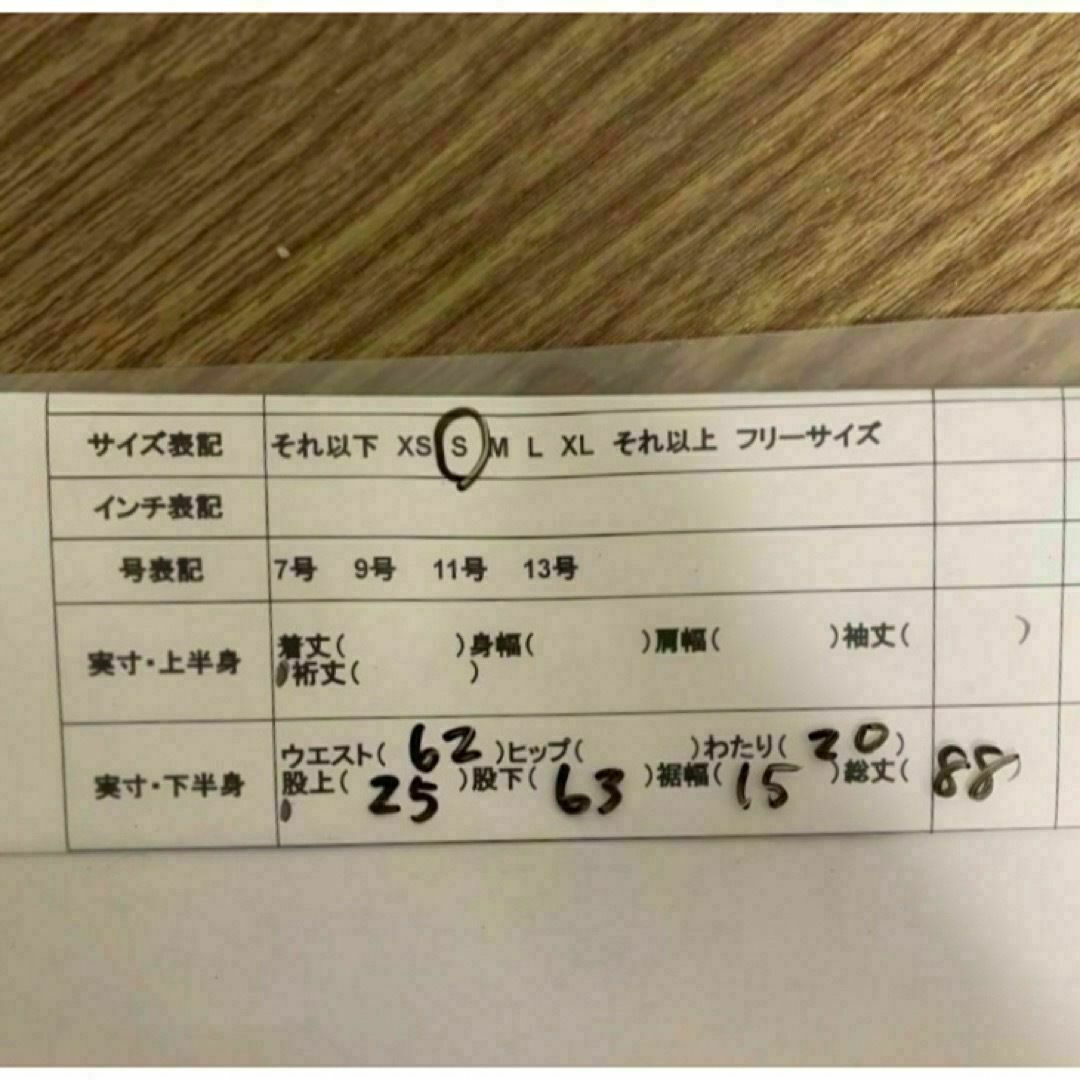 サイズ表記 それ以下 XS S M L XL それ以上 フリーサイズ
インチ表記
号表記 7号 9号 11号 13号
実寸・上半身 着丈( )身幅( )肩幅( )袖丈( )
裄丈( )
実寸・下半身 ウエスト( 62 )ヒップ( )わたり( 20 )
股上( 25 )股下( 63 )裾幅( 15 )総丈( 88 )